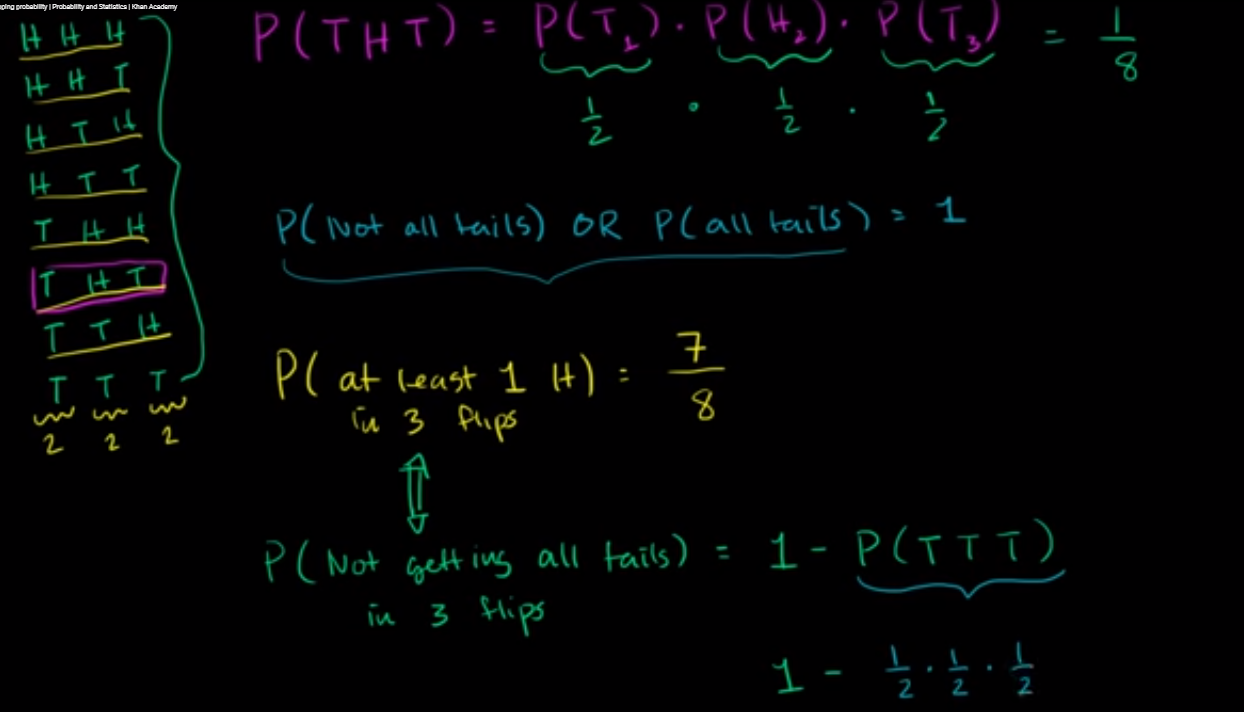 ping probability | Probability and Statistics | Khan Academy
H H H
H H T
H T H
H T T
T H H
T H T
T T H
T T T
2 2 2
P(THT) = P(T₁) · P(H₂) · P(T₃) = 1/8
1/2 · 1/2 · 1/2
P(Not all tails) OR P(all tails) = 1
P(at least 1 H) = 7/8
in 3 flips
P(Not getting all tails) = 1 - P(TTT)
in 3 flips
1 - 1/2 · 1/2 · 1/2